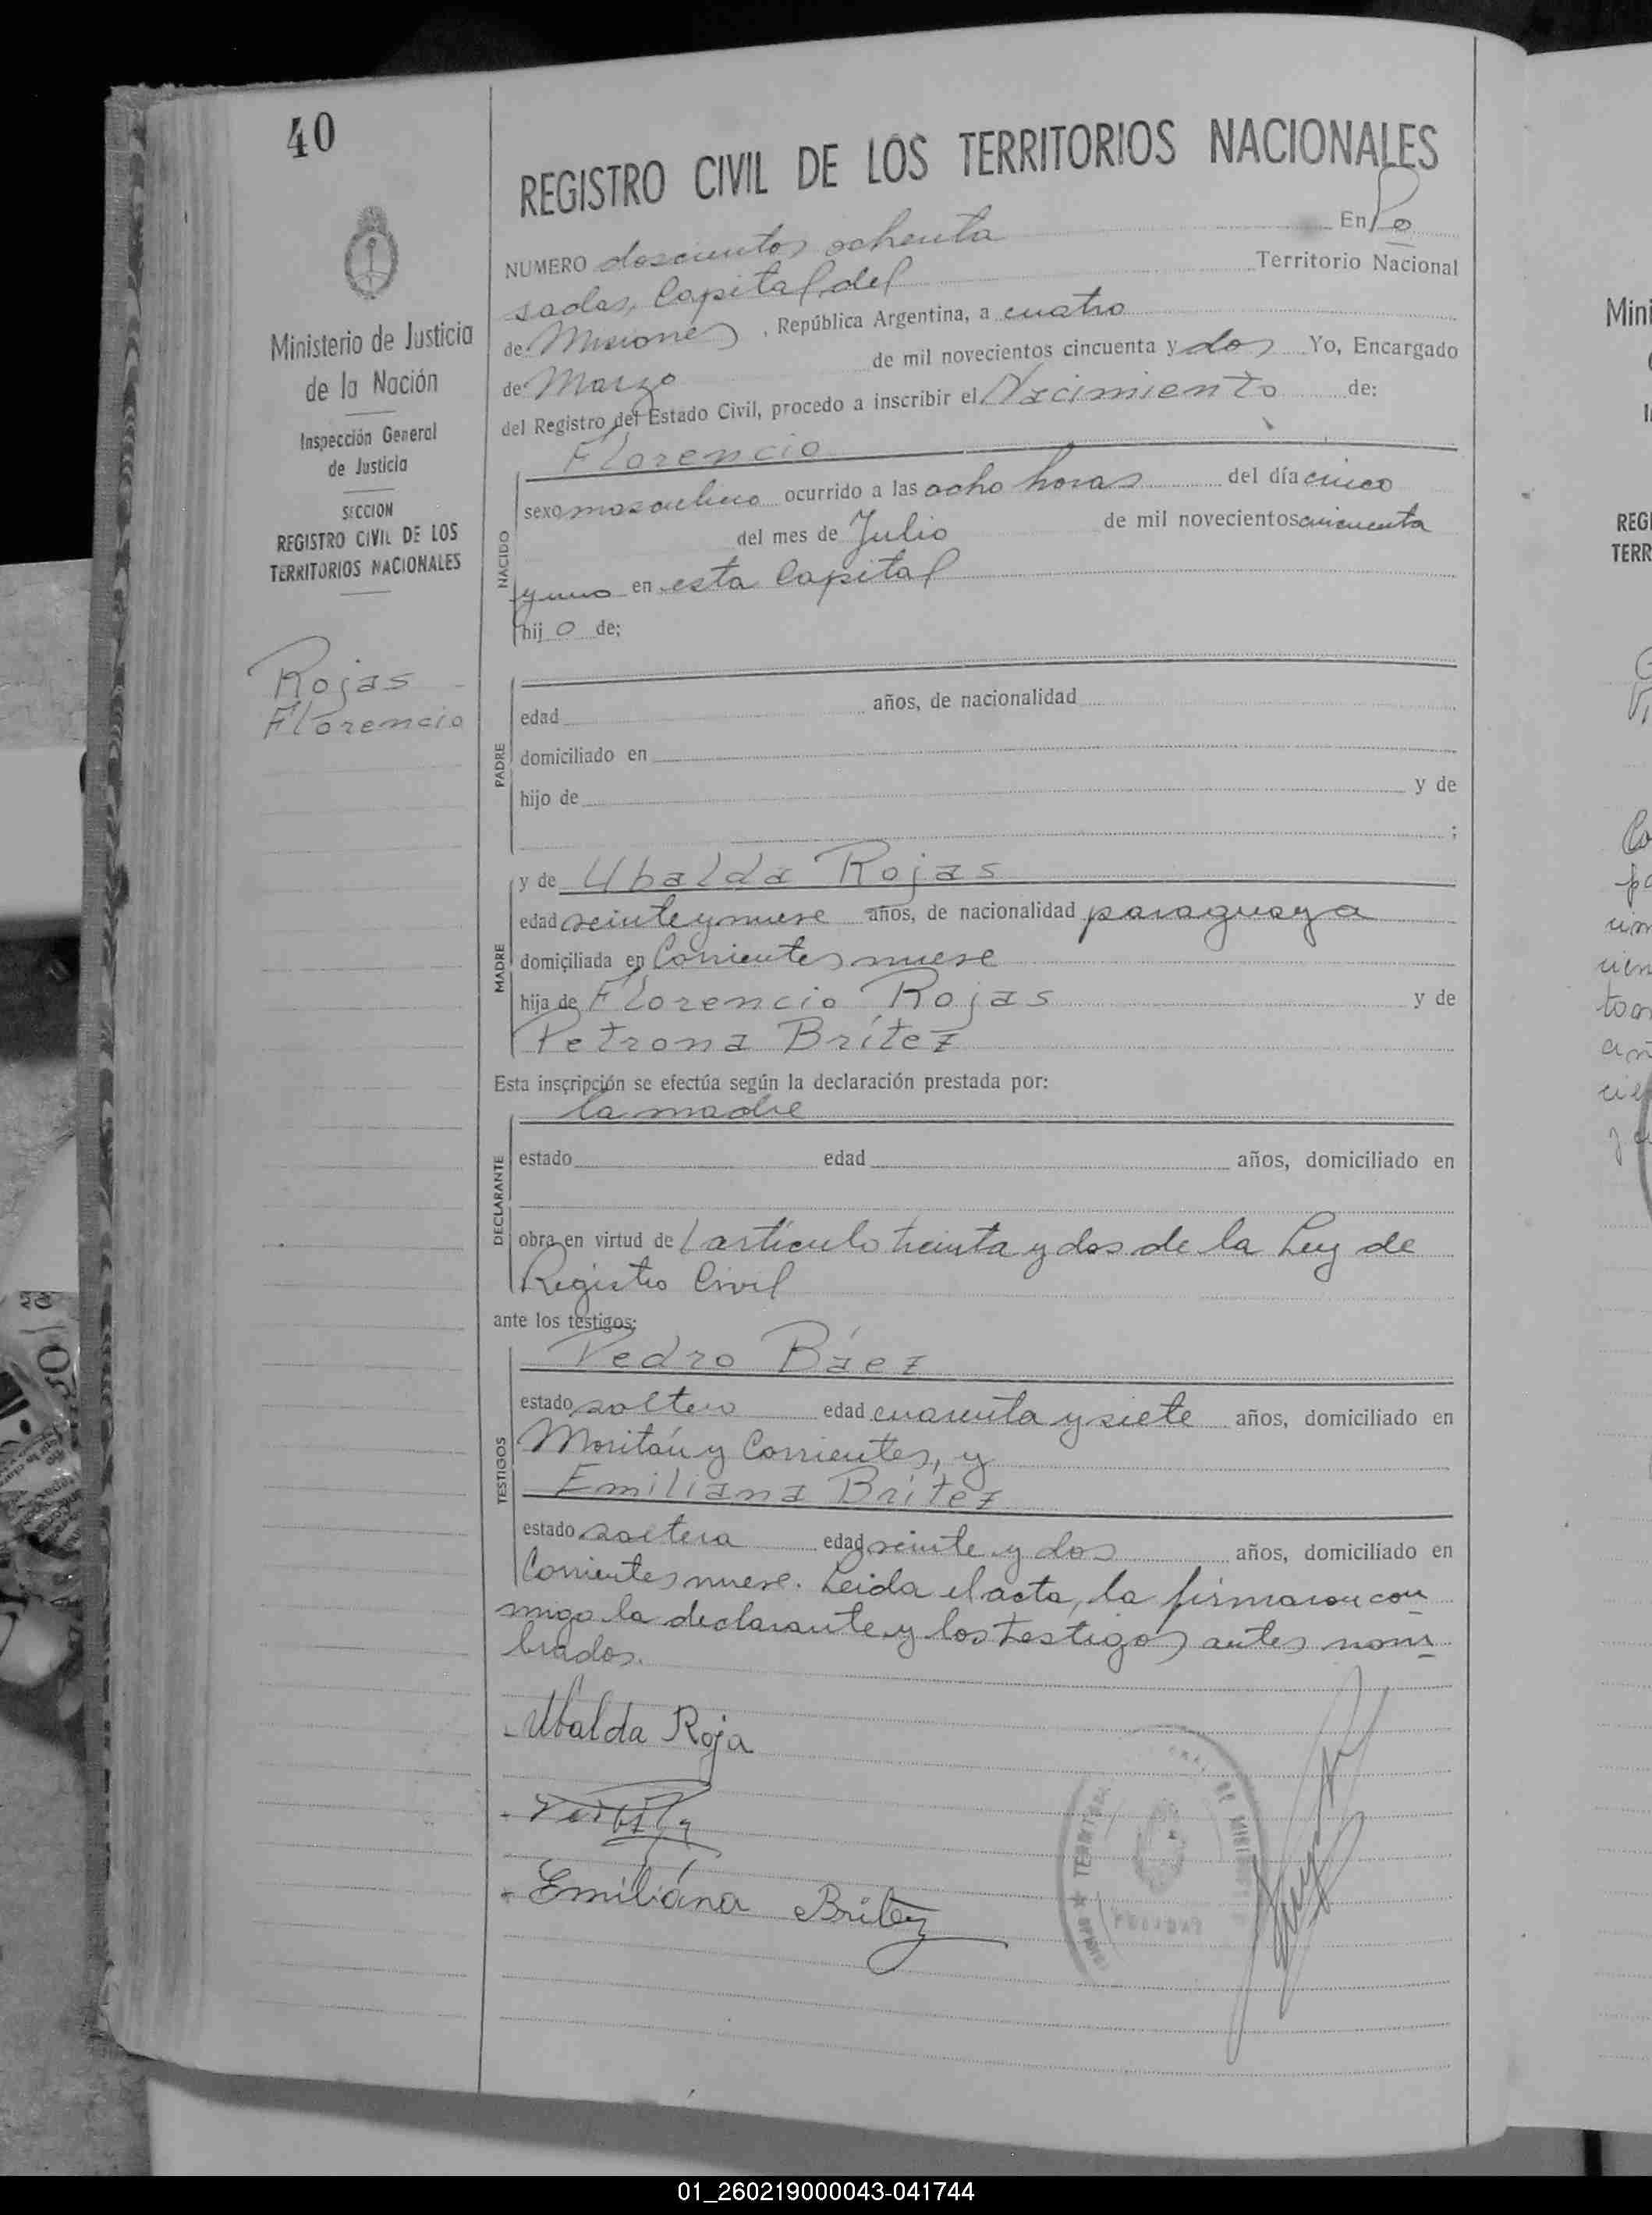 40
REGISTRO CIVIL DE LOS TERRITORIOS NACIONALES
Ministerio de Justicia
de la Nación
Inspección General
de Justicia
SECCION
REGISTRO CIVIL DE LOS
TERRITORIOS NACIONALES
Rojas
Florencio
NUMERO doscientos ochenta En Po
sadas, Capital del Territorio Nacional
de Misiones, República Argentina, a cuatro
de Marzo de mil novecientos cincuenta y dos Yo, Encargado
del Registro del Estado Civil, procedo a inscribir el Nacimiento de:
Florencio
NACIDO
sexo masculino ocurrido a las ocho horas del día cinco
del mes de Julio de mil novecientos cincuenta
y uno en esta Capital
hij o de;
PADRE
edad años, de nacionalidad
domiciliado en
hijo de y de
;
MADRE
y de Ubalda Rojas
edad veinte y nueve años, de nacionalidad paraguaya
domiciliada en Corrientes nueve
hija de Florencio Rojas y de
Petrona Brítez
Esta inscripción se efectúa según la declaración prestada por:
la madre
DECLARANTE
estado edad años, domiciliado en
obra en virtud del artículo treinta y dos de la Ley de
Registro Civil
ante los testigos:
TESTIGOS
Pedro Báez
estado soltero edad cuarenta y siete años, domiciliado en
y Corrientes, y
Emiliana Brítez
estado soltera edad veinte y dos años, domiciliado en
Corrientes nueve. Leida el acta, la firmaron con
migo la declarante y los testigos antes nom
brados.
Ubalda Roja
Emiliána Britez
TERRITORIO
Mini
REGI
TERR
01_260219000043-041744